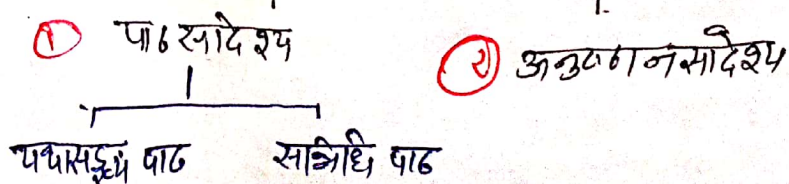 १ पाठसादेश्य
२ अनुष्ठानसादेश्य
यथासङ्ख्यं पाठ सन्निधि पाठ